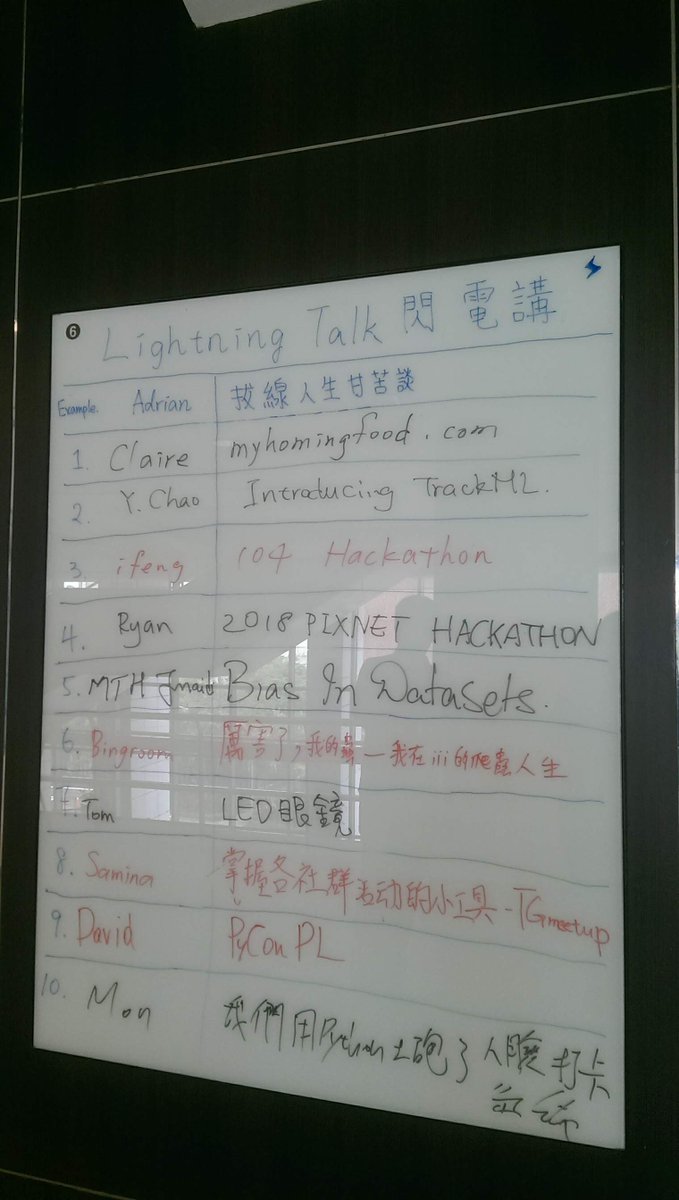 6
Lightning Talk 閃電講
Example. Adrian 拔線人生甘苦談
1. Claire myhomingfood.com
2. Y. Chao Introducing TrackML.
3. ifeng 104 Hackathon
4. Ryan 2018 PIXNET HACKATHON
5. MTH Bias In Datasets.
6. Bingroom 厲害了,我的蟲—我在iii的爬蟲人生
7. Tom LED眼鏡
8. Samina 掌握各社群活动的小工具-TGmeetup
9. David PyCon PL
10. Mon 我們用Python土砲了人臉打卡
系統